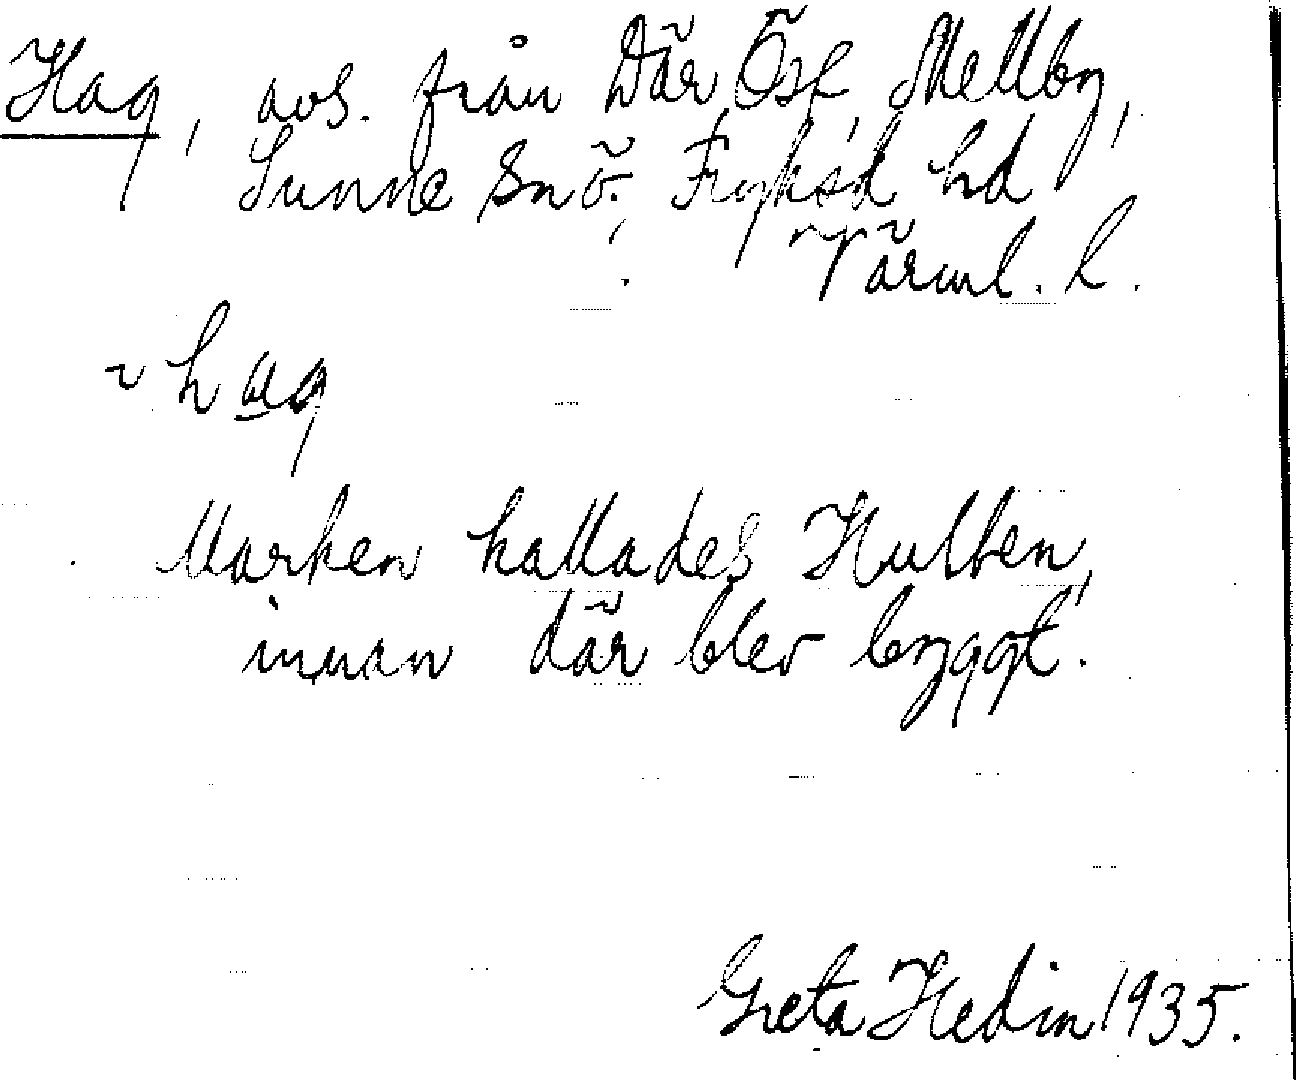 Hag, avs. från Där Öst, Mellby,
Sunne snö. Fryksd hd
Värml. l.
~ hag
Marken kallades Hulten,
innan där blev byggt.
Greta Hedin 1935.